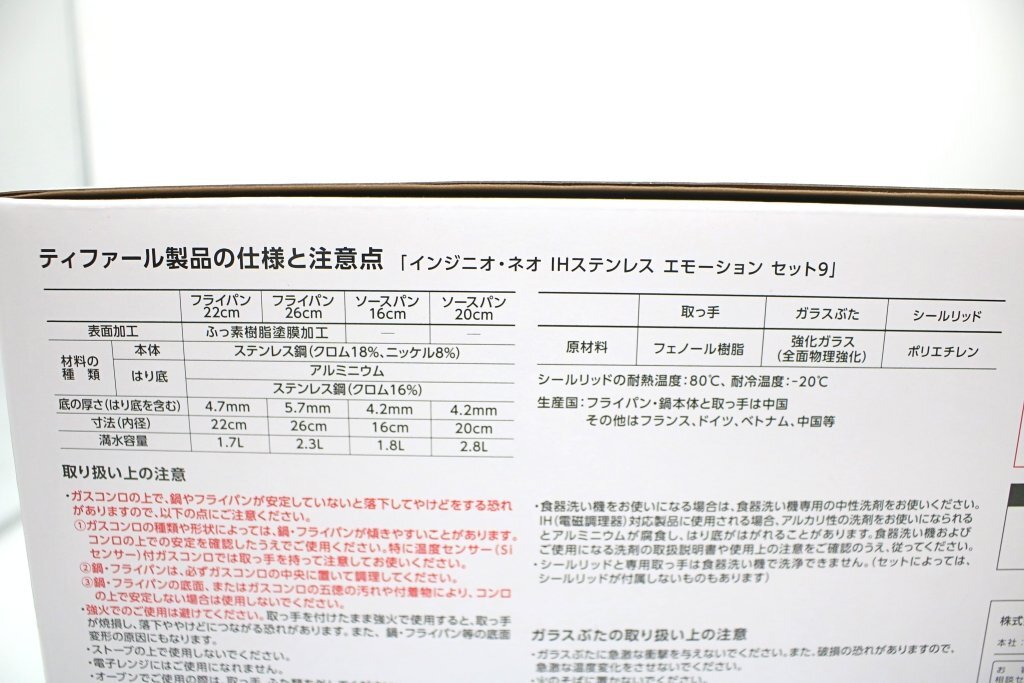 ティファール製品の仕様と注意点 「インジニオ・ネオ IHステンレス エモーション セット9」
フライパン 22cm フライパン 26cm ソースパン 16cm ソースパン 20cm
表面加工 ふっ素樹脂塗膜加工 — —
材料の種類 本体 ステンレス鋼(クロム18%、ニッケル8%)
はり底 アルミニウム
ステンレス鋼(クロム16%)
底の厚さ(はり底を含む) 4.7mm 5.7mm 4.2mm 4.2mm
寸法(内径) 22cm 26cm 16cm 20cm
満水容量 1.7L 2.3L 1.8L 2.8L
取っ手 ガラスぶた シールリッド
原材料 フェノール樹脂 強化ガラス(全面物理強化) ポリエチレン
シールリッドの耐熱温度:80℃、耐冷温度:-20℃
生産国:フライパン・鍋本体と取っ手は中国
その他はフランス、ドイツ、ベトナム、中国等
取り扱い上の注意
・ガスコンロの上で、鍋やフライパンが安定していないと落下してやけどをする恐れ
がありますので、以下の点にご注意ください。
①ガスコンロの種類や形状によっては、鍋・フライパンが傾きやすいことがあります。
コンロの上での安定を確認したうえでご使用ください。特に温度センサー(Si
センサー)付ガスコンロでは取っ手を持って注意してお使いください。
②鍋・フライパンは、必ずガスコンロの中央に置いて調理してください。
③鍋・フライパンの底面、またはガスコンロの五徳の汚れや付着物により、コンロ
の上で安定しない場合は使用しないでください。
・強火でのご使用は避けてください。取っ手を付けたまま強火で使用すると、取っ手
が焼損し、落下ややけどにつながる恐れがあります。また、鍋・フライパン等の底面
変形の原因にもなります。
・ストーブの上で使用しないでください。
・電子レンジにはご使用になれません。
・オーブンでご使用の際は、取っ手、ふた類を外してください。
・食器洗い機をお使いになる場合は、食器洗い機専用の中性洗剤をお使いください。
IH(電磁調理器)対応製品に使用される場合、アルカリ性の洗剤をお使いになられる
とアルミニウムが腐食し、はり底がはがれることがあります。食器洗い機および
ご使用になる洗剤の取扱説明書や使用上の注意をご確認のうえ、従ってください。
・シールリッドと専用取っ手は食器洗い機で洗浄できません。(セットによっては、
シールリッドが付属しないものもあります)
ガラスぶたの取り扱い上の注意
・ガラスぶたに急激な衝撃を与えないでください。また、破損の恐れがありますので、
急激な温度変化をさせないでください。
・火のそばに置かないでください。
株式
本社:
お
相談セ